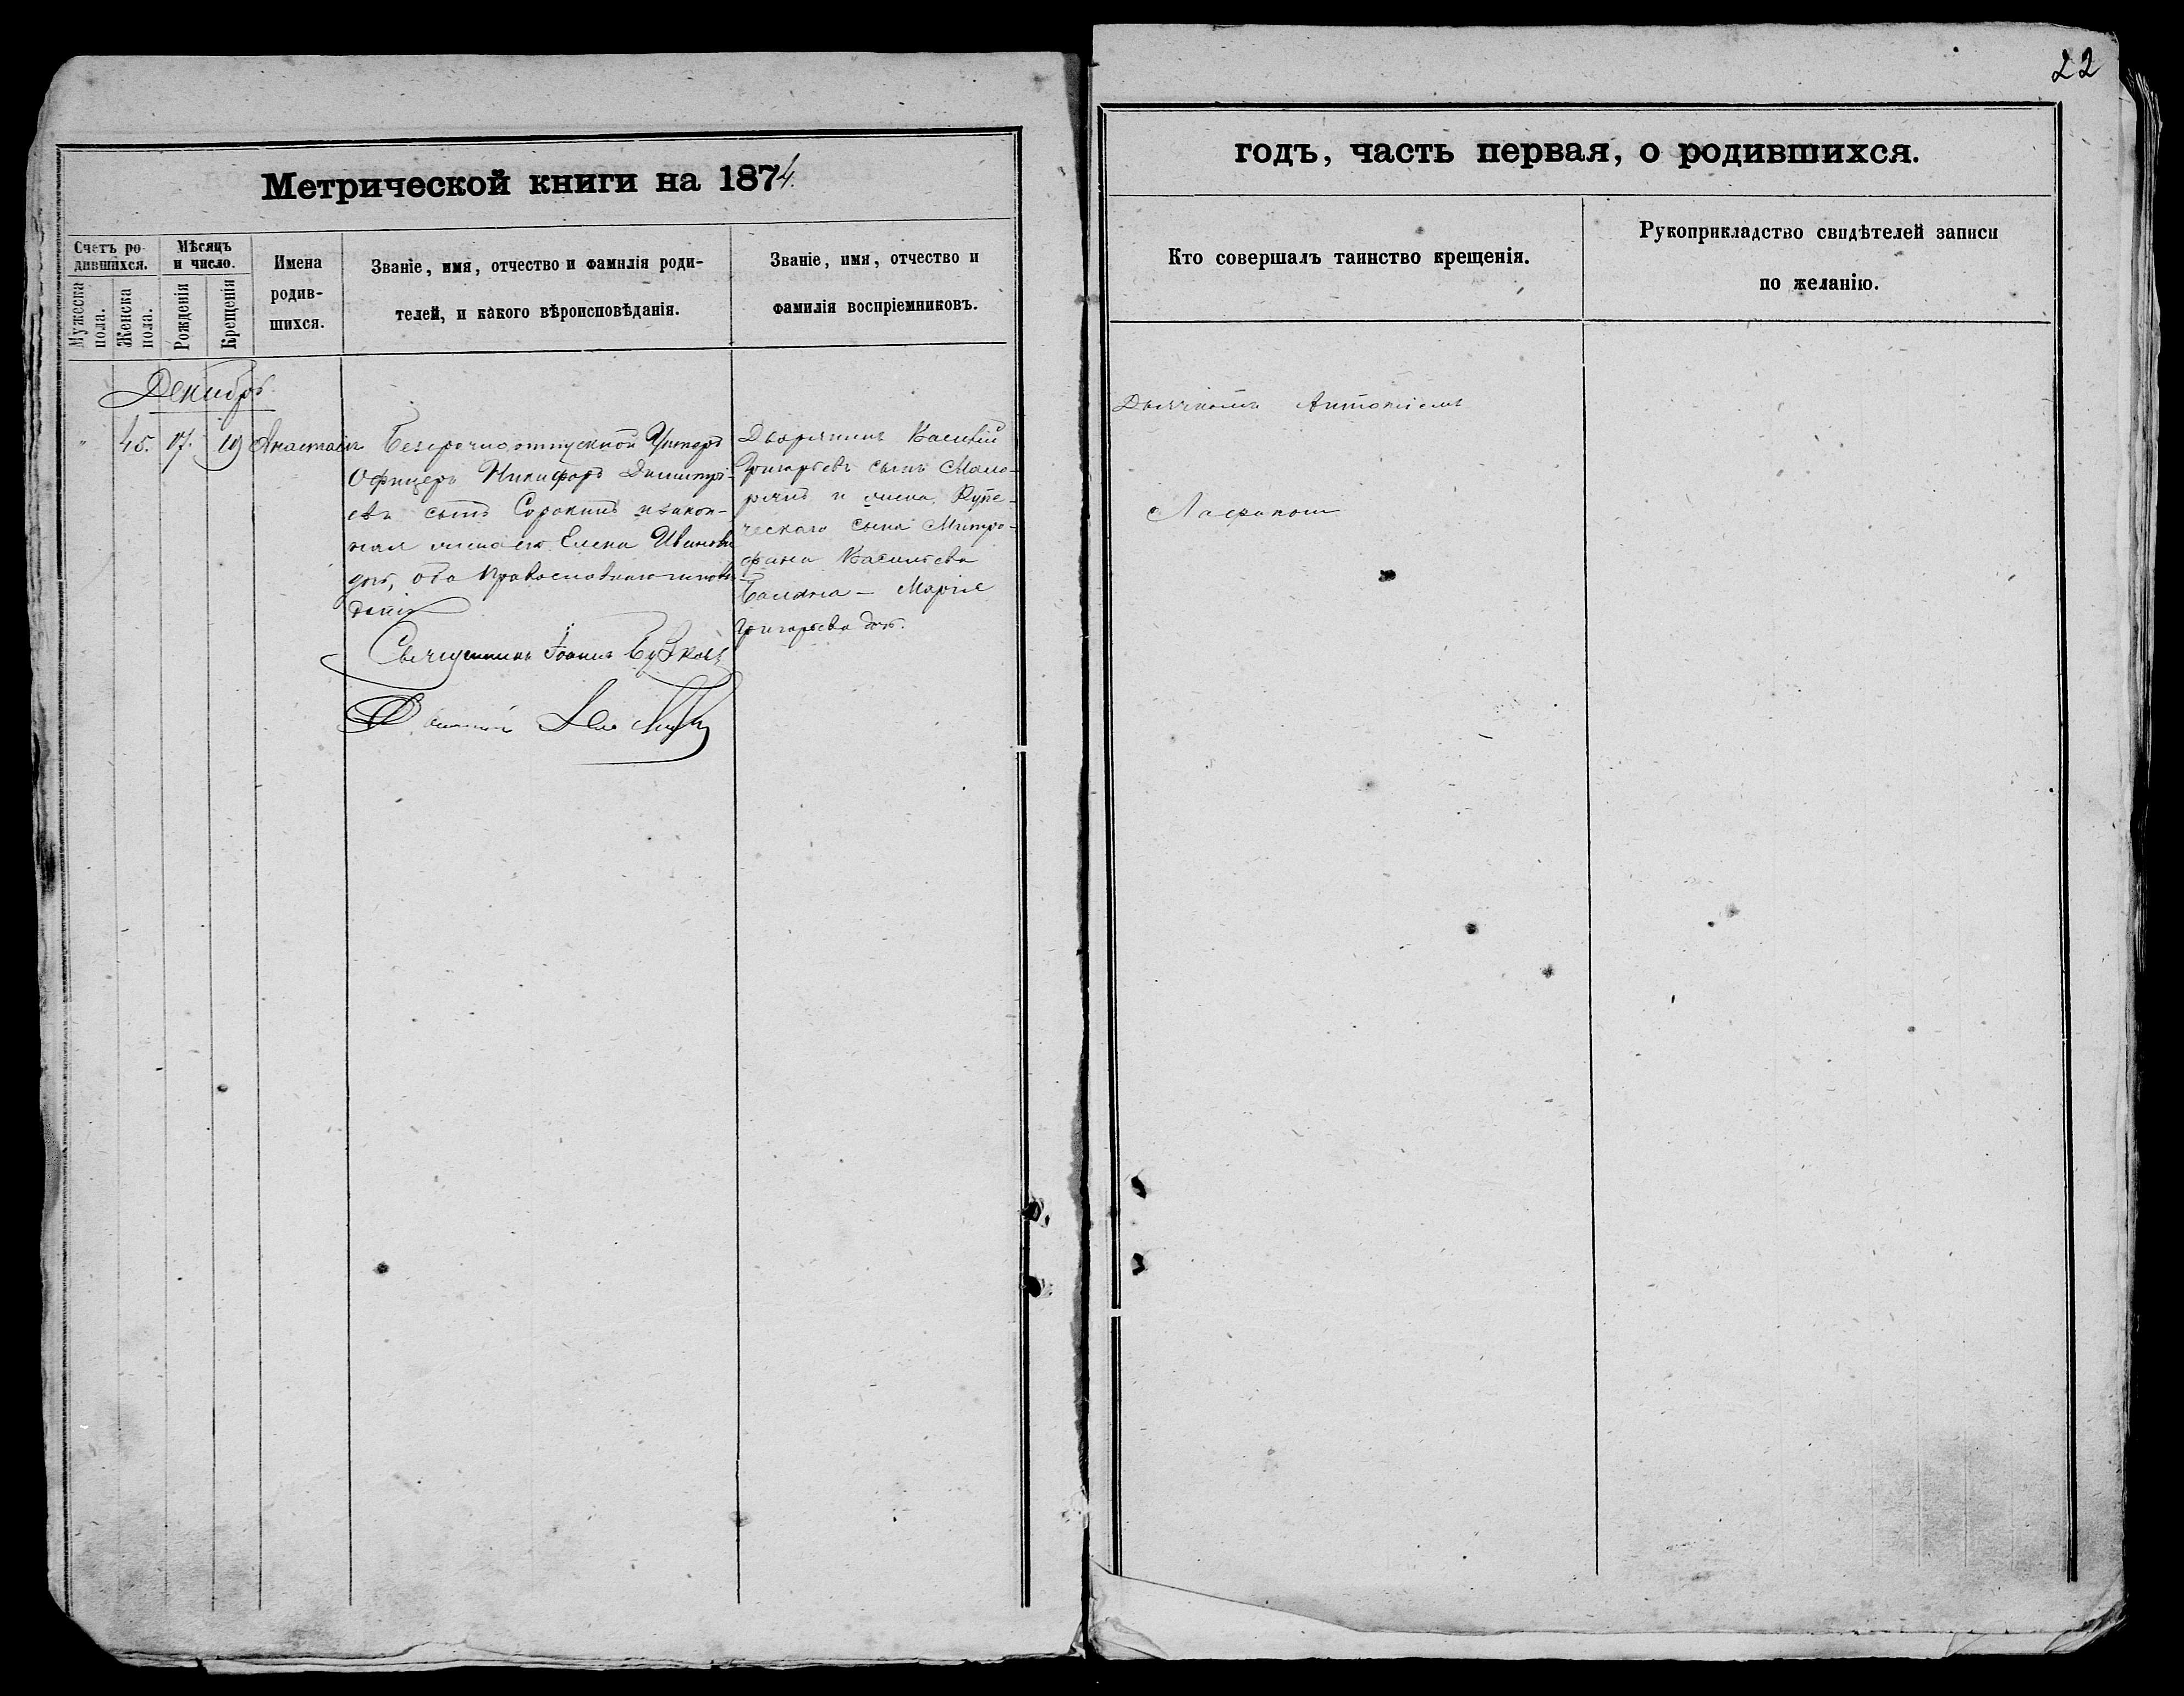 22
Метрической книги на 1874.
годъ, часть первая, о родившихся.
Счетъ ро-
дившихся.
Мужеска
пола.
Женска
пола.
Мѣсяцъ
и число.
Рожденія
Крещенія
Имена
родив-
шихся.
Званіе, имя, отчество и фамилія роди-
телей, и какого вѣроисповѣданія.
Званіе, имя, отчество и
фамилія воспріемниковъ.
Кто совершалъ таинство крещенія.
Рукоприкладство свидѣтелей записи
по желанію.
Декабрь.
"
45.
17.
19
Анастасія
Безсрочноотпускной Унтеръ
Офицеръ Никифоръ Димитрі-
евъ сынъ Сорокинъ и закон-
ная жена его Елена Иванова
дочь, оба Православнаго исповѣ-
данія
Священникъ Іоаннъ
Дворянинъ Василій
Григорьевъ сынъ Мало-
и жена Купе-
ческаго сына Митро-
фана Васильева
Марія
Григорьева дочь.
Антоніемъ